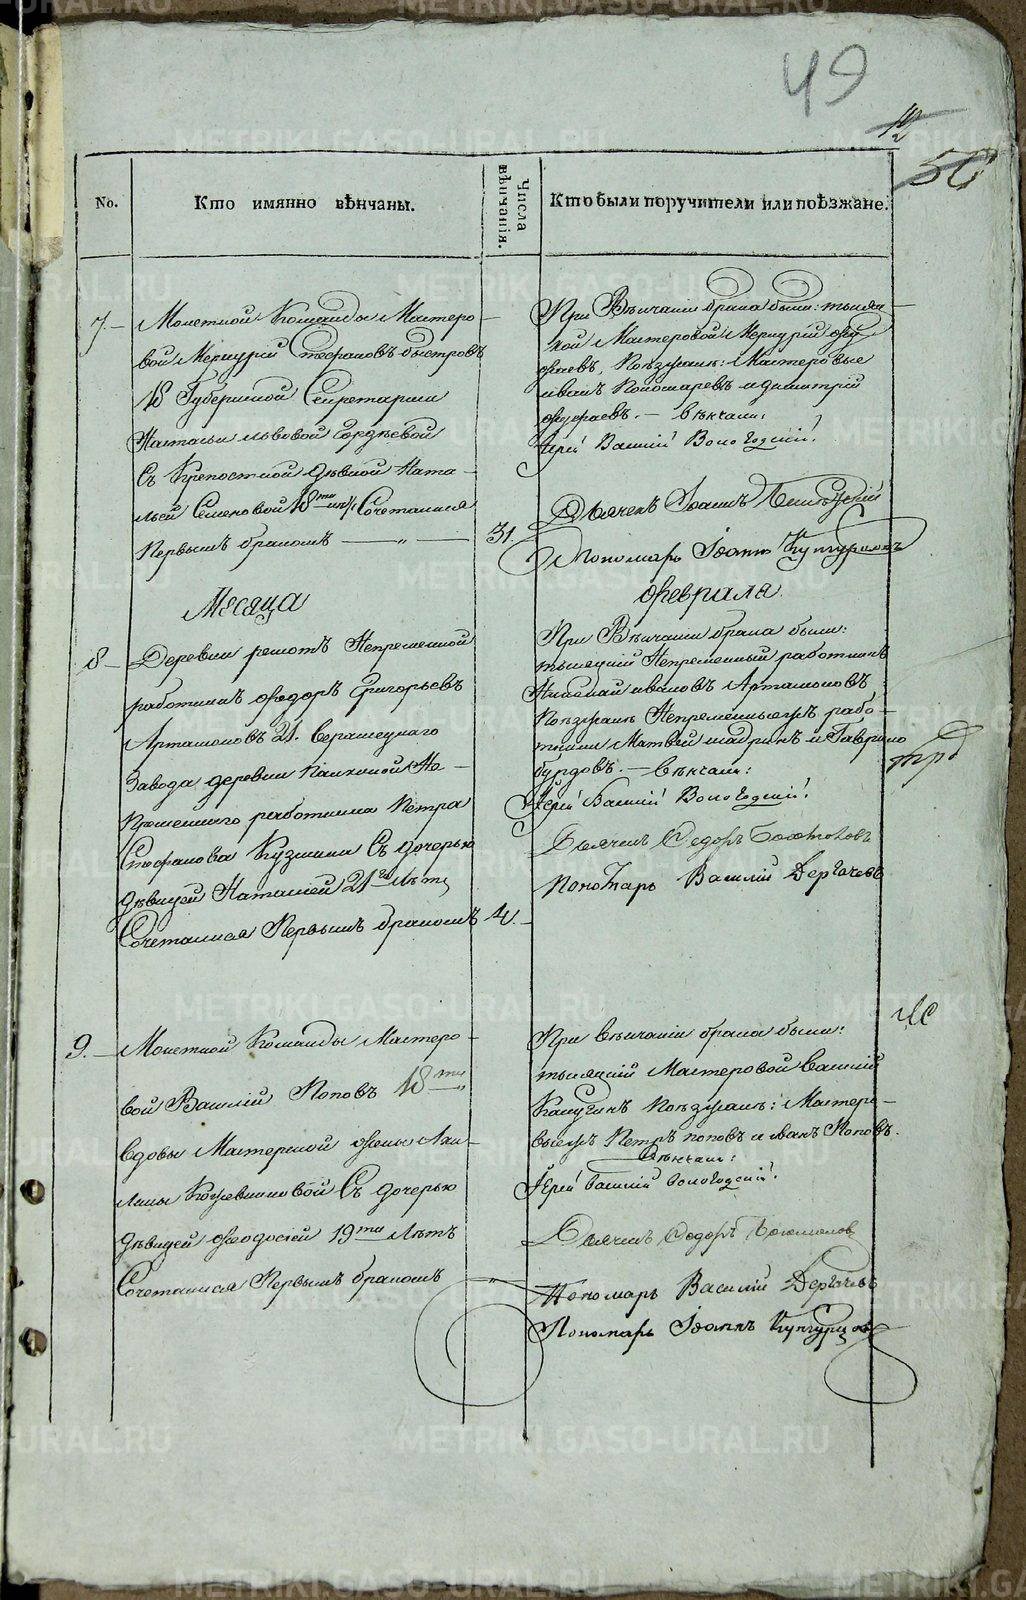 49
50
No.
Кто имянно вѣнчаны.
Числа вѣнчанія.
Кто были поручители или поѣзжане.
7. Монетной Команды Мастеро-
вой Меркурій Стефановъ Быстровъ
18 Губернской Секретарши
Настасьи Львовой Гордѣевой
Съ Крепостной дѣвкой Ната-
льей Семеновой 18ти Сочетались
Первымъ бракомъ
31.
При Вѣнчаніи брака были: тысяц-
кой Мастеровой Меркурій
Поѣзжаны: Мастеровые
иванъ Пономаревъ и димитрій
вѣнчали:
Іерей Василій Вологодскій.
Дьячекъ Іоаннъ
Пономарь Іоаннъ Кунгурцовъ
Месяца
Февраля
8 Деревни решотъ Непременной
работникъ Федоръ Григорьевъ
Артамоновъ 21. Верашецкаго
Завода деревни Не-
пременнаго работника Петра
Стефанова Кузмина Съ дочерью
дѣвицей Натальей 21 Лѣтъ
Сочетались Первымъ бракомъ
4.
При Вѣнчаніи брака были:
тысяцкій Непременный работникъ
Николай ивановъ Артамоновъ
Поѣзжаны Непременныежъ рабо-
тники Матвей шадринъ и Гаврило
бурдовъ. вѣнчали:
Іерей Василій Вологодскій.
Дьячекъ Федоръ
Пономарь Василій Дергачевъ
9. Монетной Команды Мастеро-
вой Василій Поповъ 18ти
Вдовы Мастерской жены
Кожевниковой Съ дочерью
дѣвицей Феодосіей 19ти Лѣтъ
Сочетались Первымъ бракомъ
При вѣнчаніи брака были:
тысяцкій Мастеровой Василій
Поѣзжаны: Мастеро-
выежъ Петръ поповъ и иванъ Поповъ.
Вѣнчали:
Іерей Василій Вологодскій.
Дьячекъ Федоръ
Пономарь Василій Дергачевъ
Пономарь Іоаннъ Кунгурцовъ
METRIKI.GASO-URAL.RU